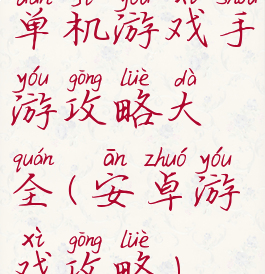 dān jī yóu xì shǒu
单机游戏手
yóu gōng lüè dà
游攻略大
quán ān zhuó yóu
全(安卓游
xì gōng lüè
戏攻略)